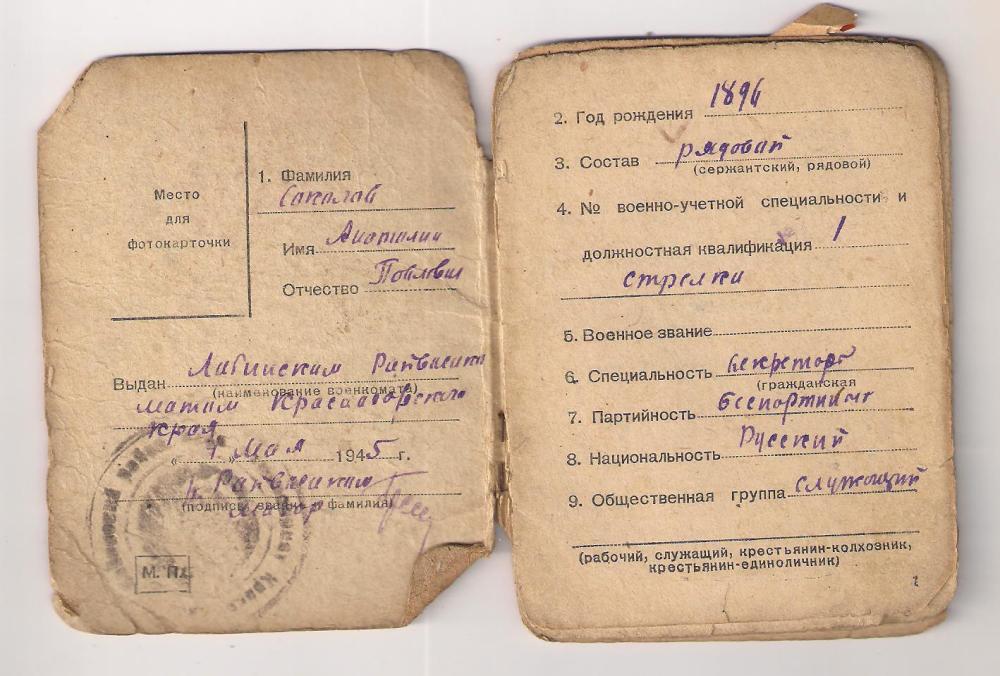 Место
для
фотокарточки
1. Фамилия
Соколов
Имя Анатолий
Отчество Павлович
Выдан Лабинским Райвоенко
(наименование военкомата)
матом Краснодарского
края
" Мая 1945 г.
Райвоенком
(подпись, звание и фамилия)
Майор
М. П.
2. Год рождения 1896
3. Состав рядовой
(сержантский, рядовой)
4. № военно-учетной специальности и
должностная квалификация 1
стрелки
5. Военное звание
6. Специальность секретарь
(гражданская
7. Партийность беспартийный
8. Национальность Русский
9. Общественная группа служащий
(рабочий, служащий, крестьянин-колхозник,
крестьянин-единоличник)